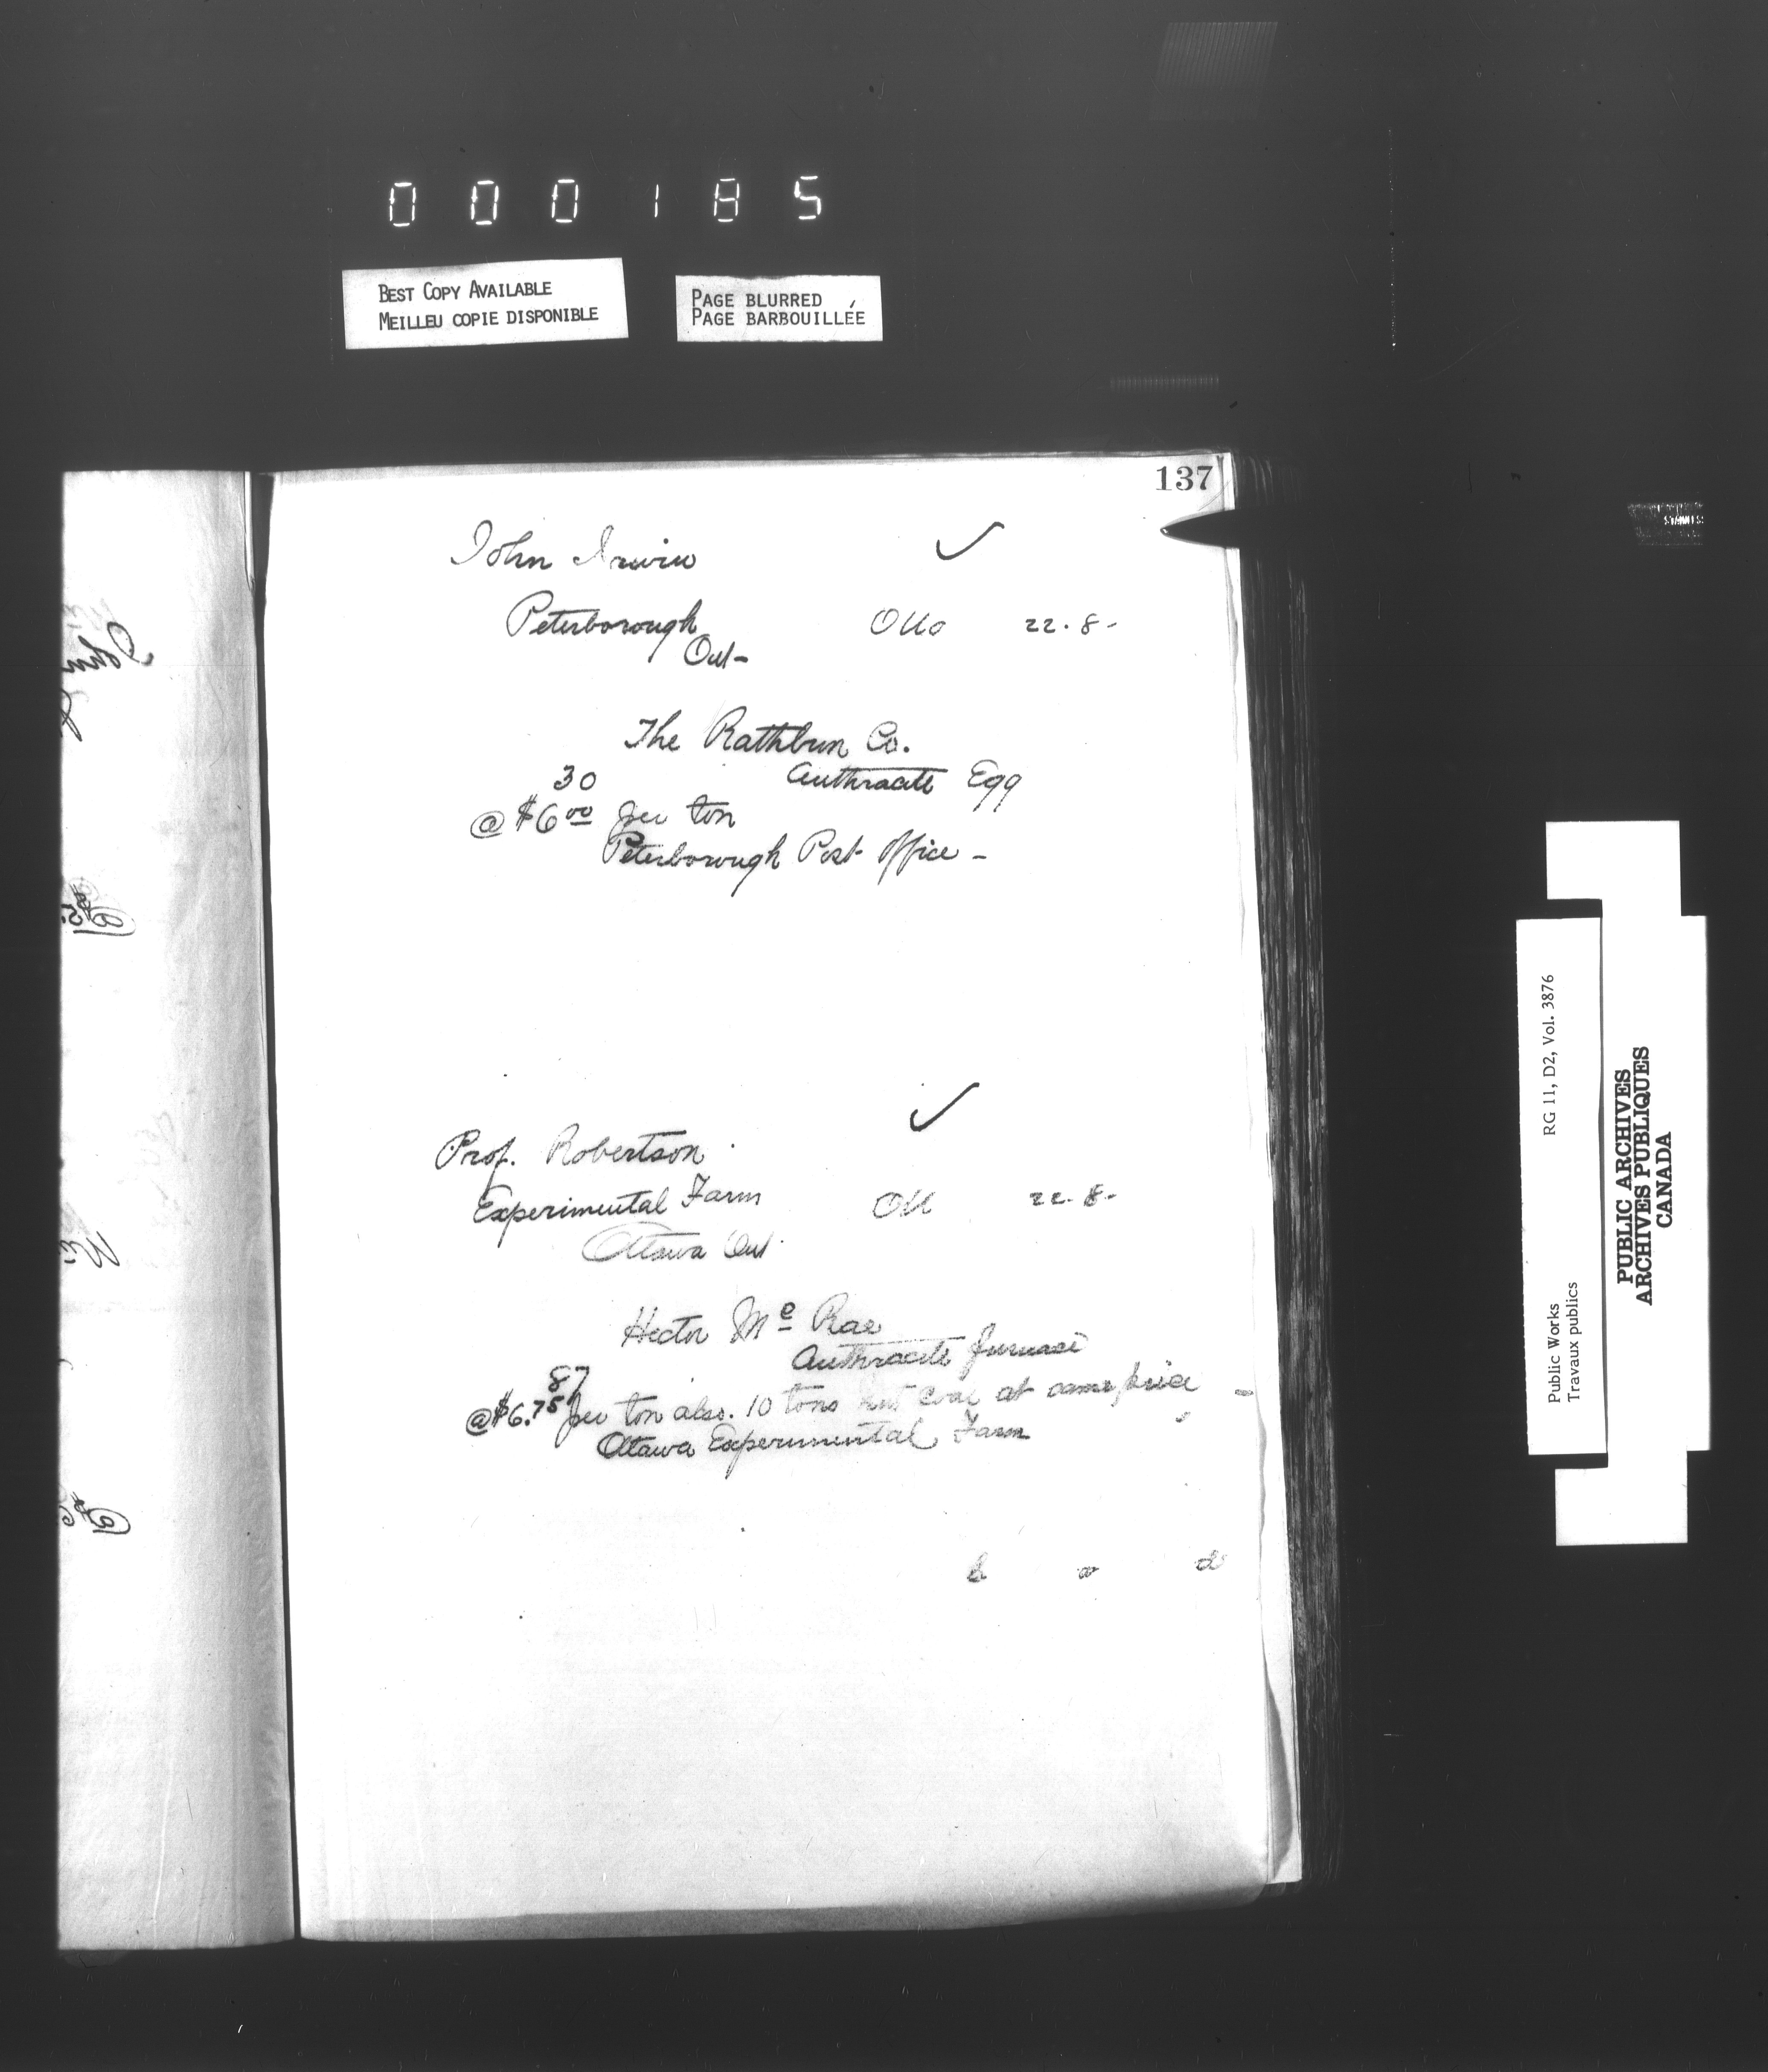 000185
BEST COPY AVAILABLE
MEILLEU COPIE DISPONIBLE
PAGE BLURRED
PAGE BARBOUILLÉE
137
John Irwin
Peterborough 22.8-
Ont-
The Rathbun Co.
30 Anthracite Egg
@ $6 00 per ton
Peterborough Post Office -
Prof. Robertson
Experimental Farm 22-8-
Ottawa Ont
Hector Mc Rae
Anthracite furnace
87
@ $6.75 per ton also. 10 tons nut coal at same price -
Ottawa Experimental Farm
Public Works
Travaux publics
RG 11, D2, Vol. 3876
PUBLIC ARCHIVES
ARCHIVES PUBLIQUES
CANADA